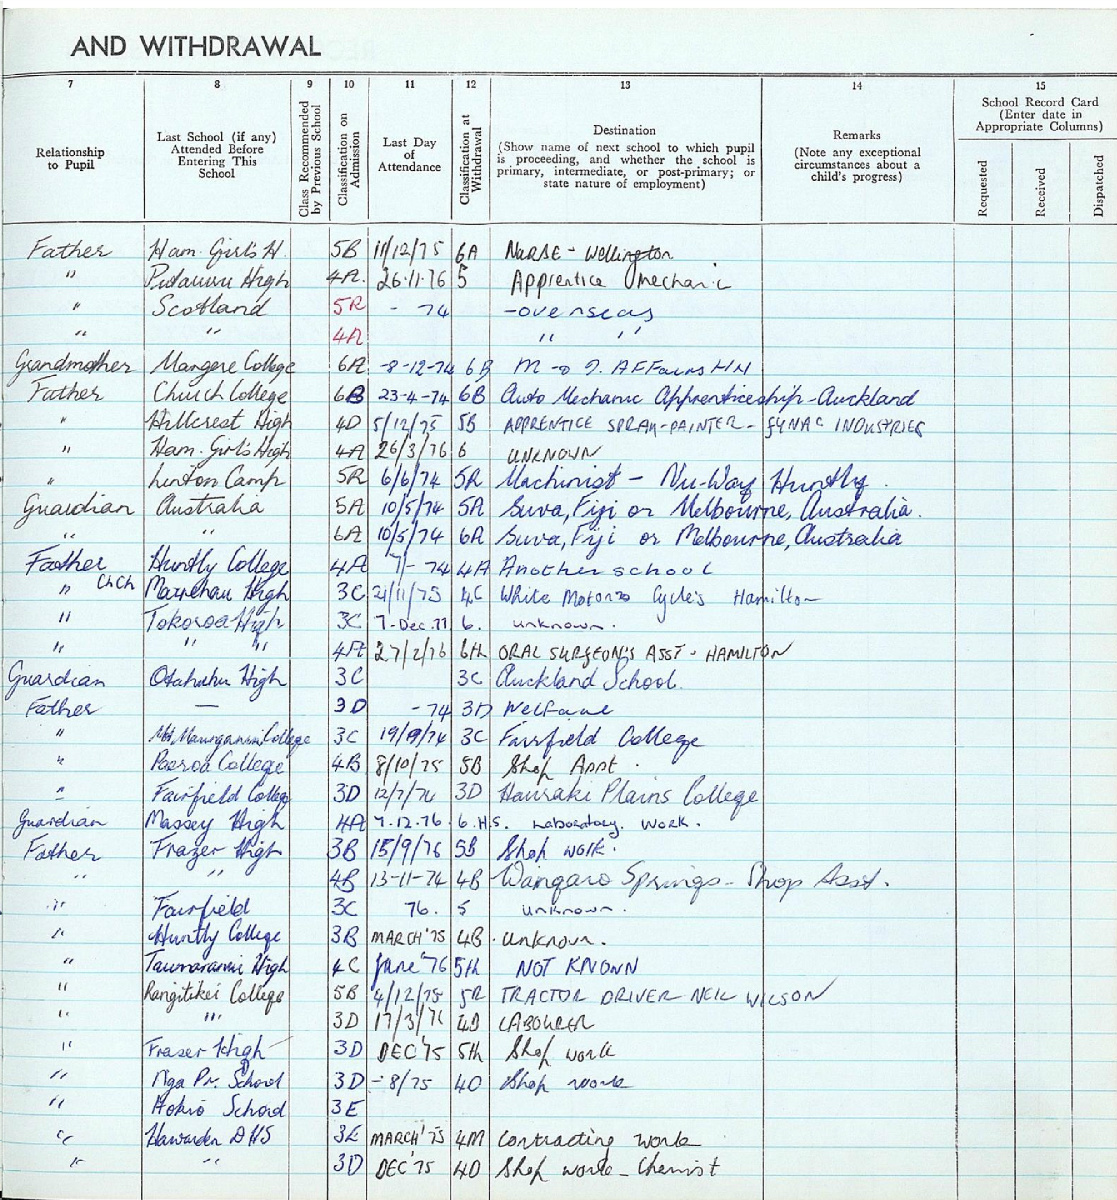 AND WITHDRAWAL
7 8 9 10 11 12 13 14 15
Relationship to Pupil
Last School (if any) Attended Before Entering This School
Class Recommended by Previous School
Classification on Admission
Last Day of Attendance
Classification at Withdrawal
Destination (Show name of next school to which pupil is proceeding, and whether the school is primary, intermediate, or post-primary; or state nature of employment)
Remarks (Note any exceptional circumstances about a child's progress)
School Record Card (Enter date in Appropriate Columns)
Requested Received Dispatched
Father Ham. Girl's H. 5B 11/12/75 6A NURSE - Wellington
" High 4A. 26.11.76 5 Apprentice Mechanic
" Scotland 5R - 74 -overseas
" " 4A " "
Grandmother Mangere College 6A -8-12-74 6B AFFairs HN
Father Church College 6B 23-4-74 6B Auto Mechanic Apprenticeship-Auckland
" Hillcrest High 4D 5/12/75 5B APPRENTICE SPRAY-PAINTER - INDUSTRIES
" Ham. Girl's High 4A 26/3/76 6 UNKNOWN
" Linton Camp 5R 6/6/74 5R Machinist - Nu-Way Huntly.
Guardian Australia 5A 10/5/74 5A Suva, Fiji or Melbourne, Australia.
" " 6A 10/5/74 6A Suva, Fiji or Melbourne, Australia
Father Huntly College 4A 7/- 74 4A Another school
" ChCh Mairehau High 3C 21/11/75 4C White Motorz Cycle's Hamilton
" Tokoroa High 3C 7-Dec. 6. unknown.
" " " 27/2/76 6th ORAL SURGEON'S ASST - HAMILTON
Guardian Otahuhu High 3C 3C Auckland School.
Father — 3D -74 3D Welfare
" College 3C 74 3C Fairfield College
" Paeroa College 4B 8/10/75 5B Shop Asst.
" Fairfield College 3D 12/7/76 3D Hauraki Plains College
Guardian Massey High 4A 7.12.76 6.H.S. Laboratory. Work.
Father Frazer High 3B 15/9/76 5B Shop work.
" " 4B 13-11-74 4B Springs - Shop Asst.
" Fairfield 3C 76. 5 unknown.
" Huntly College 3B MARCH '75 4B. Unknown.
" High 4C June '76 5th NOT KNOWN
" Rangitikei College 5B 4/12/75 5R TRACTOR DRIVER NEIL WILSON
" " 3D 17/3/76 4D LABOURER
" Fraser High 3D DEC '75 5th Shop work
" Nga Pr. School 3D -8/75 4D Shop work
" Hokio School 3E
" Hawarden DHS 3E MARCH '75 4M Contracting work
" " 3D DEC '75 4D Shop work - Chemist